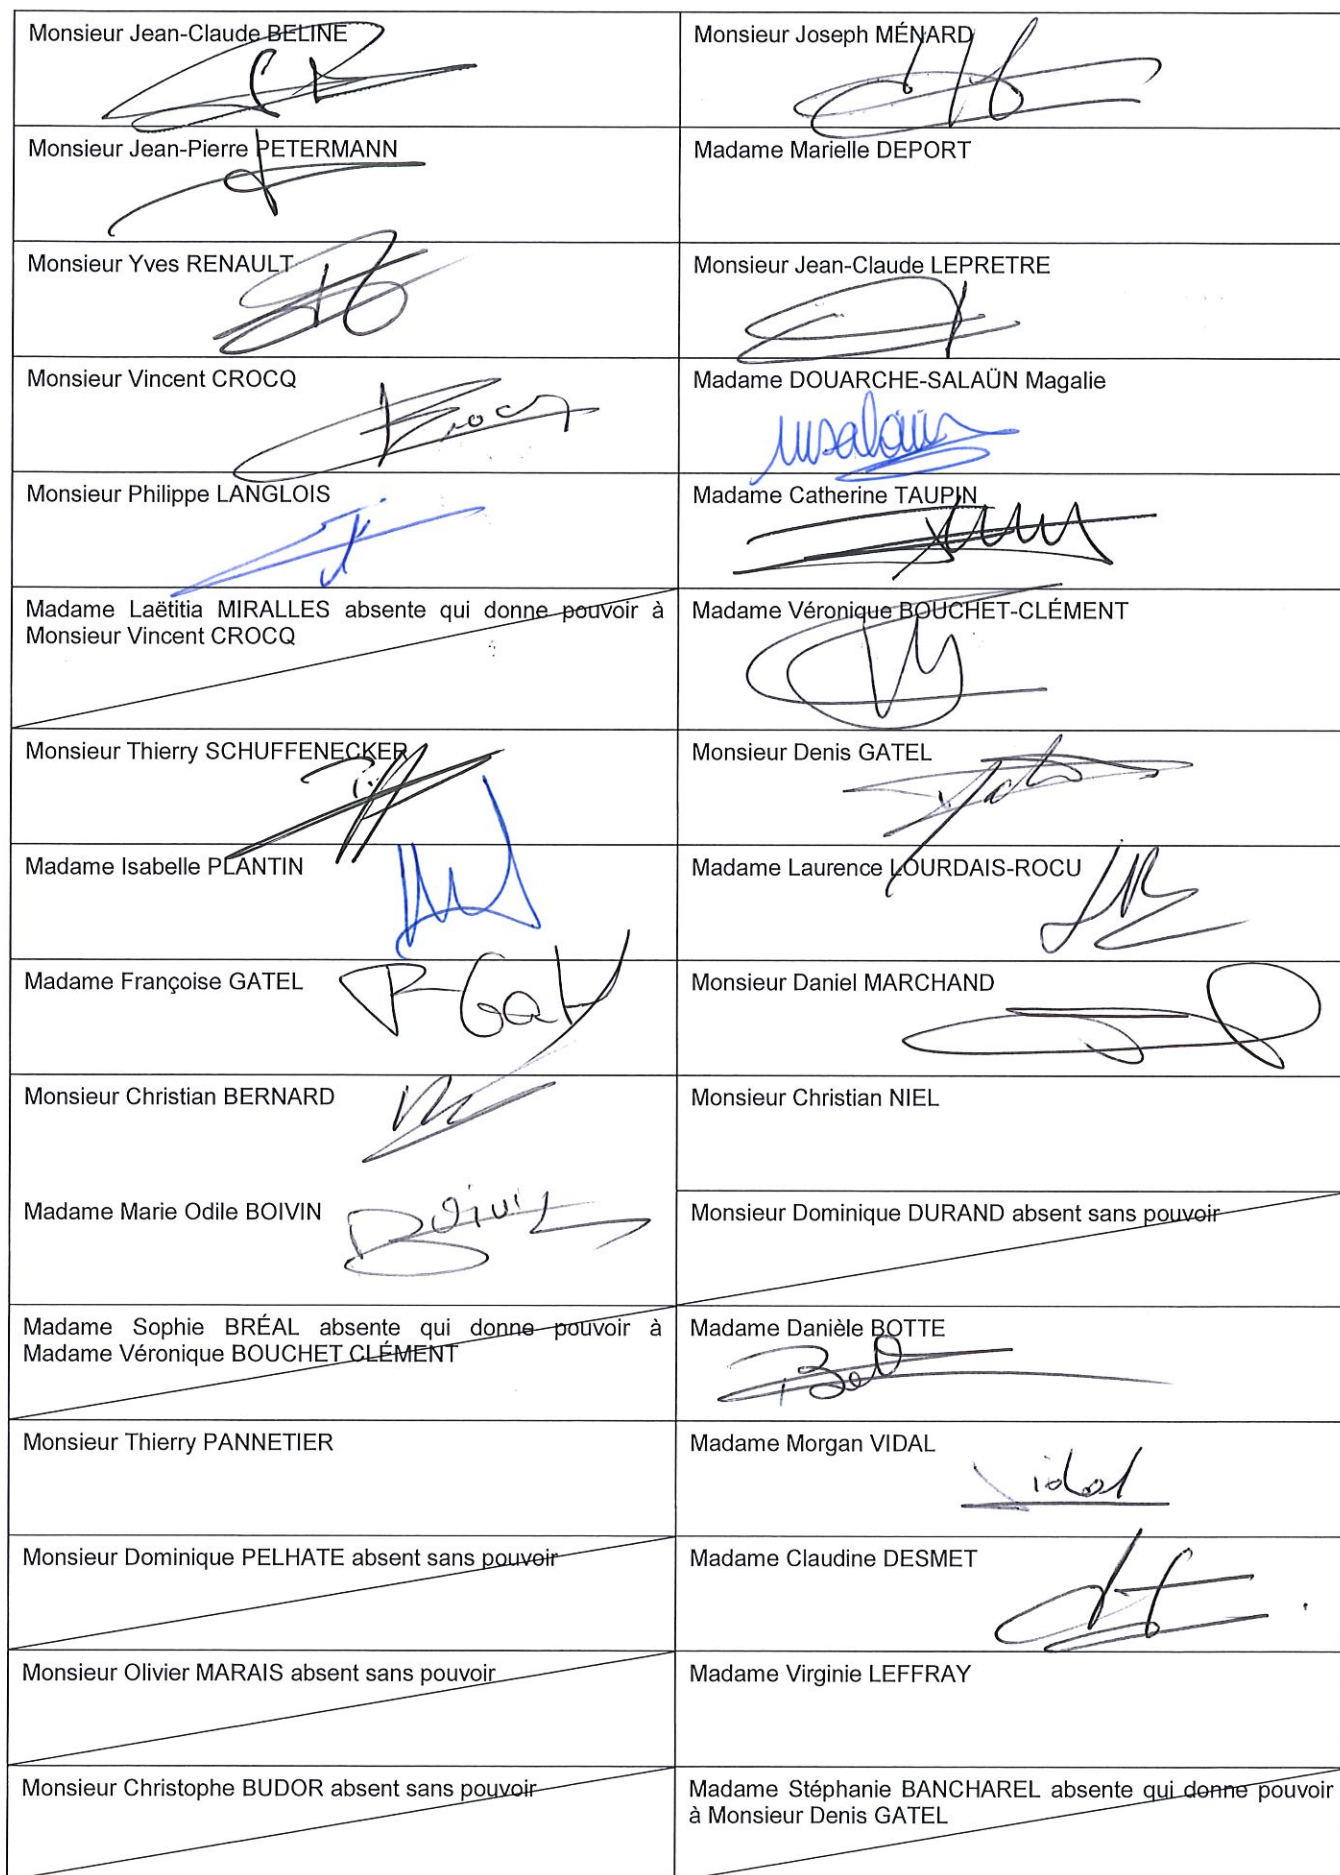 Monsieur Jean-Claude BELINE
Monsieur Joseph MÉNARD
Monsieur Jean-Pierre PETERMANN
Madame Marielle DEPORT
Monsieur Yves RENAULT
Monsieur Jean-Claude LEPRETRE
Monsieur Vincent CROCQ
Crocq
Madame DOUARCHE-SALAÜN Magalie
msalaün
Monsieur Philippe LANGLOIS
Madame Catherine TAUPIN
Madame Laëtitia MIRALLES absente qui donne pouvoir à
Monsieur Vincent CROCQ
Madame Véronique BOUCHET-CLÉMENT
Monsieur Thierry SCHUFFENECKER
Monsieur Denis GATEL
Madame Isabelle PLANTIN
Madame Laurence LOURDAIS-ROCU
Madame Françoise GATEL
F Gatel
Monsieur Daniel MARCHAND
Monsieur Christian BERNARD
Monsieur Christian NIEL
Madame Marie Odile BOIVIN
Boivin
Monsieur Dominique DURAND absent sans pouvoir
Madame Sophie BRÉAL absente qui donne pouvoir à
Madame Véronique BOUCHET CLÉMENT
Madame Danièle BOTTE
Monsieur Thierry PANNETIER
Madame Morgan VIDAL
Vidal
Monsieur Dominique PELHATE absent sans pouvoir
Madame Claudine DESMET
Monsieur Olivier MARAIS absent sans pouvoir
Madame Virginie LEFFRAY
Monsieur Christophe BUDOR absent sans pouvoir
Madame Stéphanie BANCHAREL absente qui donne pouvoir
à Monsieur Denis GATEL